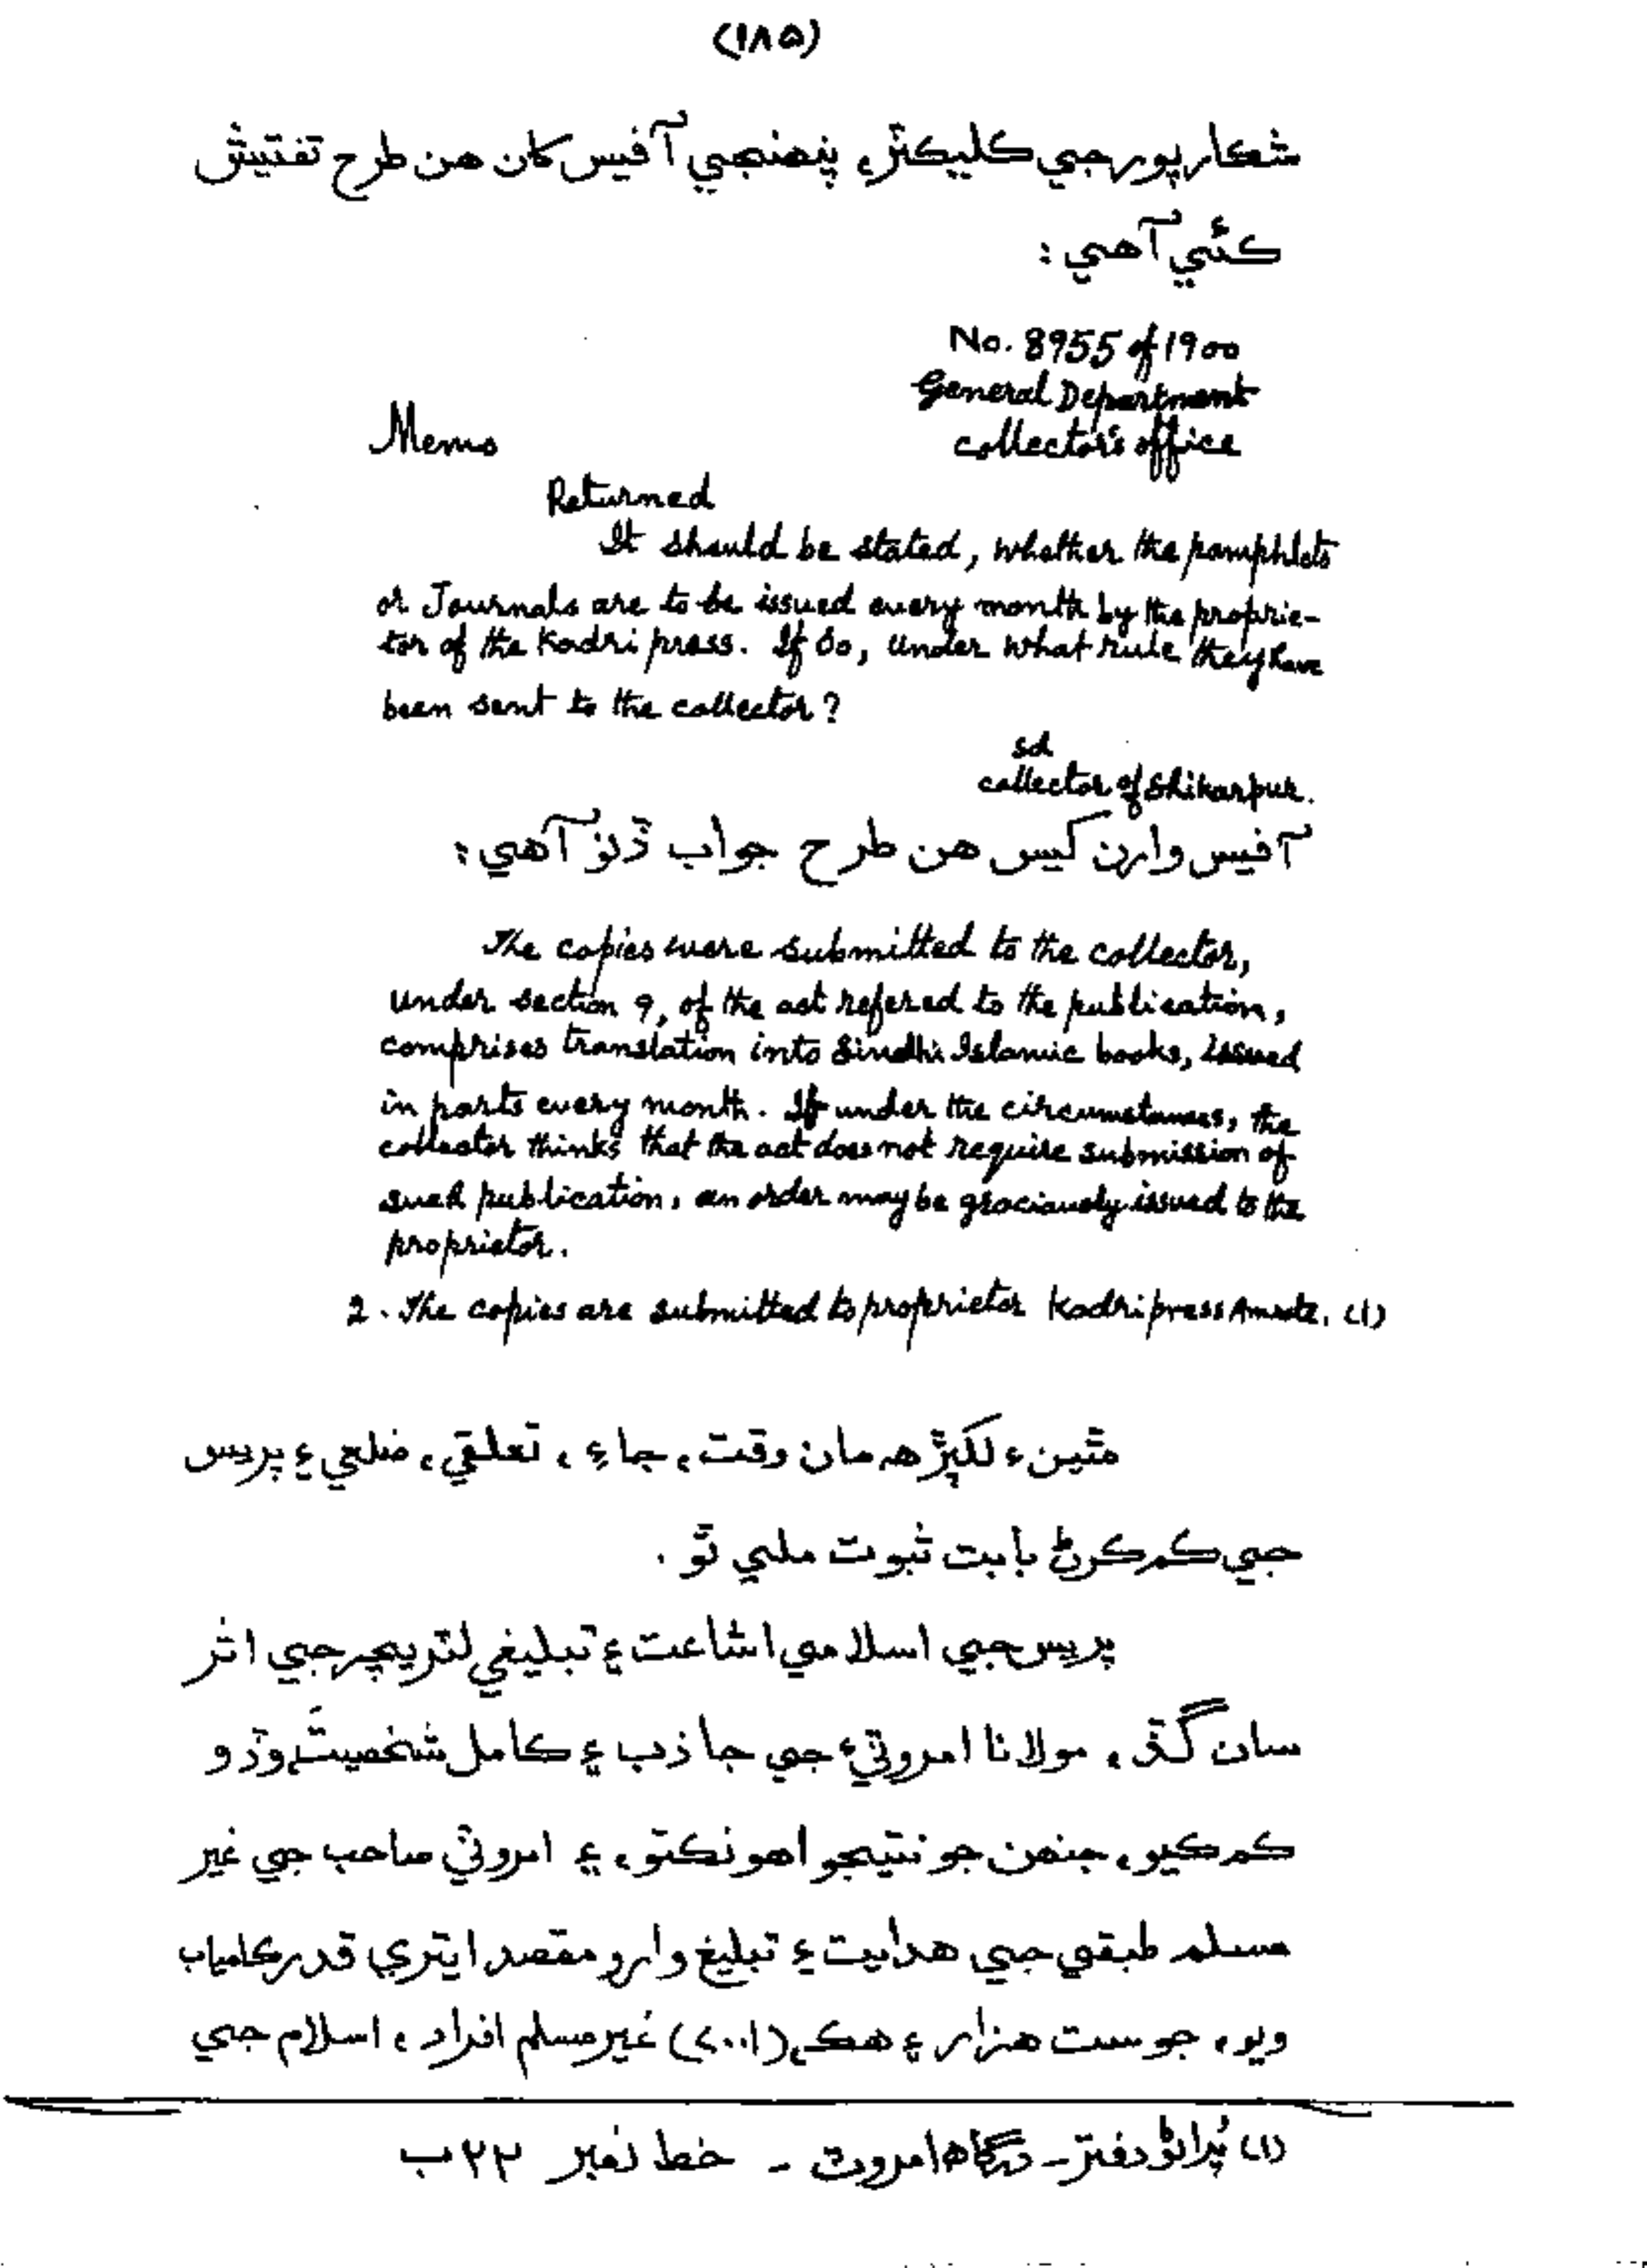 (۱۸۵)
شڪارپور جي ڪليڪٽر، پنھنجي آفيس کان ھن طرح تفتيش
ڪئي آھي:
No. 8955 of 1900
General Department
Memo collector's office
Returned
It should be stated, whether the pamphlets
or Journals are to be issued every month by the proprie-
tor of the Kadri press. If so, under what rule they have
been sent to the collector?
sd
collector of Shikarpur.
آفيس وارن کيس ھن طرح جواب ڏنو آھي:
The copies were submitted to the collector,
under section 9, of the act refered to the publication,
comprises translation into Sindhi Islamic books, issued
in parts every month. If under the circumstances, the
collector thinks that the act does not require submission of
such publication, an order may be graciously issued to the
proprietor.
2. The copies are submitted to proprietor Kadri press Amrote. (1)
مٿين۽ لکپڙھ مان وقت، جاءِ، تعلقي، ضلعي ۽ پريس
جي ڪم ڪرڻ بابت ثبوت ملي ٿو.
پريس جي اسلامي اشاعت ۽ تبليغي لٽريچر جي اثر
سان گڏ، مولانا امروٽيءَ جي جاذب ۽ ڪامل شخصيت، وڏو
ڪم ڪيو، جنھن جو نتيجو اھو نڪتو، ۽ امروٽي صاحب جي غير
مسلم طبقي جي ھدايت ۽ تبليغ وارو مقصد ايتري قدر ڪامياب
ويو، جو ست ھزار ۽ ھڪ (۷۰۰۱) غير مسلم افراد، اسلام جي
(۱) پراڻو دفتر - درگاھ امروٽ - خط نمبر ۲۳ ب